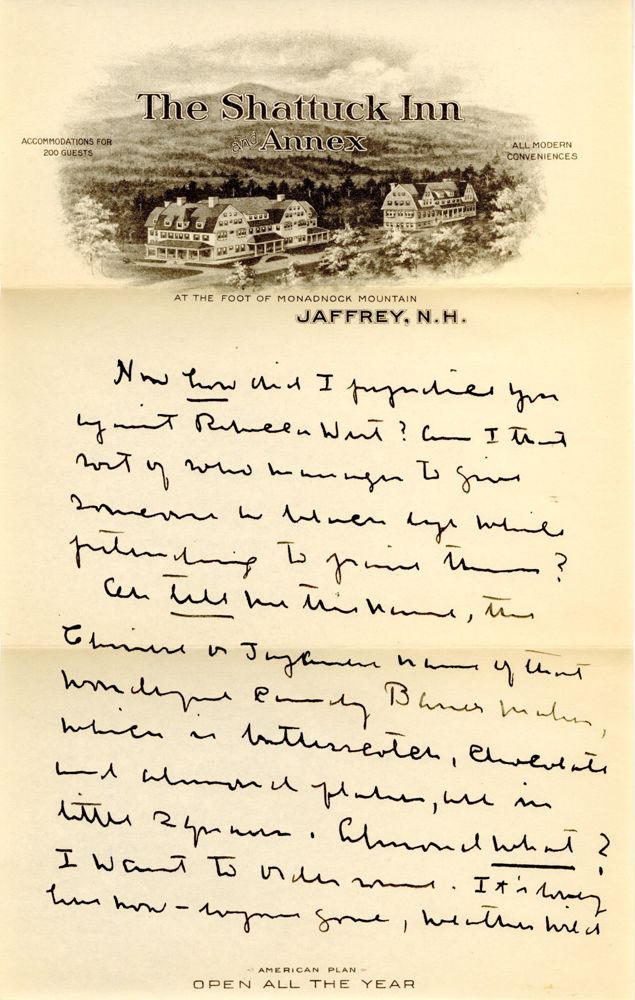 The Shattuck Inn
and Annex
ACCOMMODATIONS FOR
200 GUESTS
ALL MODERN
CONVENIENCES
AT THE FOOT OF MONADNOCK MOUNTAIN
JAFFREY, N.H.
Now how did I prejudice you
against Rebecca West? Am I that
sort of who manages to give
someone a black eye while
pretending to praise them?
tell me the name, the
Chinese or Japanese name of that
wonderful candy Barnes makes,
which is butterscotch, chocolate
and almond flakes, all in
little squares. Almond what?
I want to order some. It's lovely
here now – gone, weather mild
AMERICAN PLAN
OPEN ALL THE YEAR